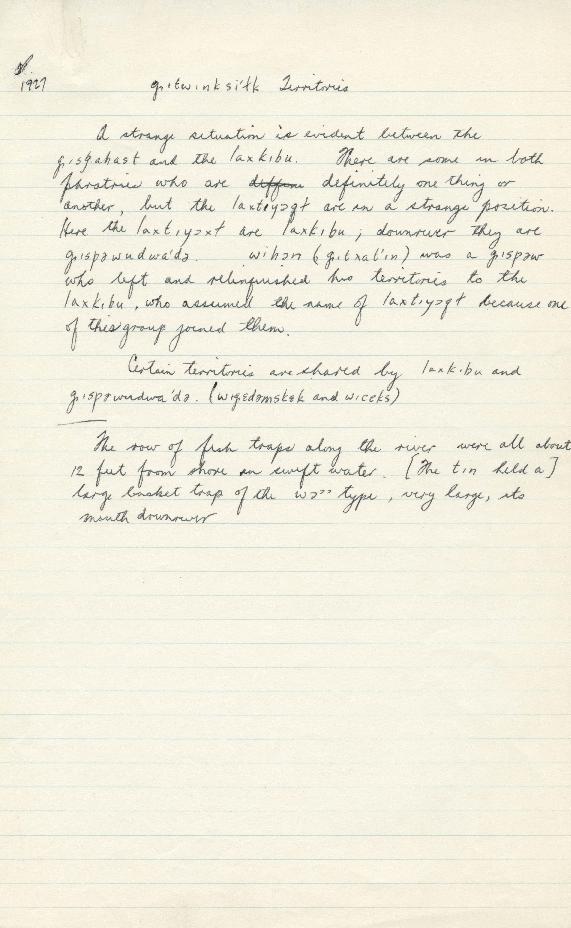 1927
gitwinksi'tk Territories
A strange situation is evident between the
gisgahast and the laxkibu. There are some in both
phratries who are definitely one thing or
another, but the laxtiyɔgt are in a strange position.
Here the laxtiyɔxt are laxkibu; downriver they are
gispəwudwa'də. wihɔn (gitxal'in) was a gispəw
who left and relinquished his territories to the
laxkibu, who assumed the name of laxtiyɔgt because one
of this group joined them.
Certain territories are shared by laxkibu and
gispəwudwa'də. (wigɛdəmskɛk and wiɛɛks)
The row of fish traps along the river were all about
12 feet from shore in swift water. [The tin held a]
large basket trap of the type, very large, its
mouth downriver